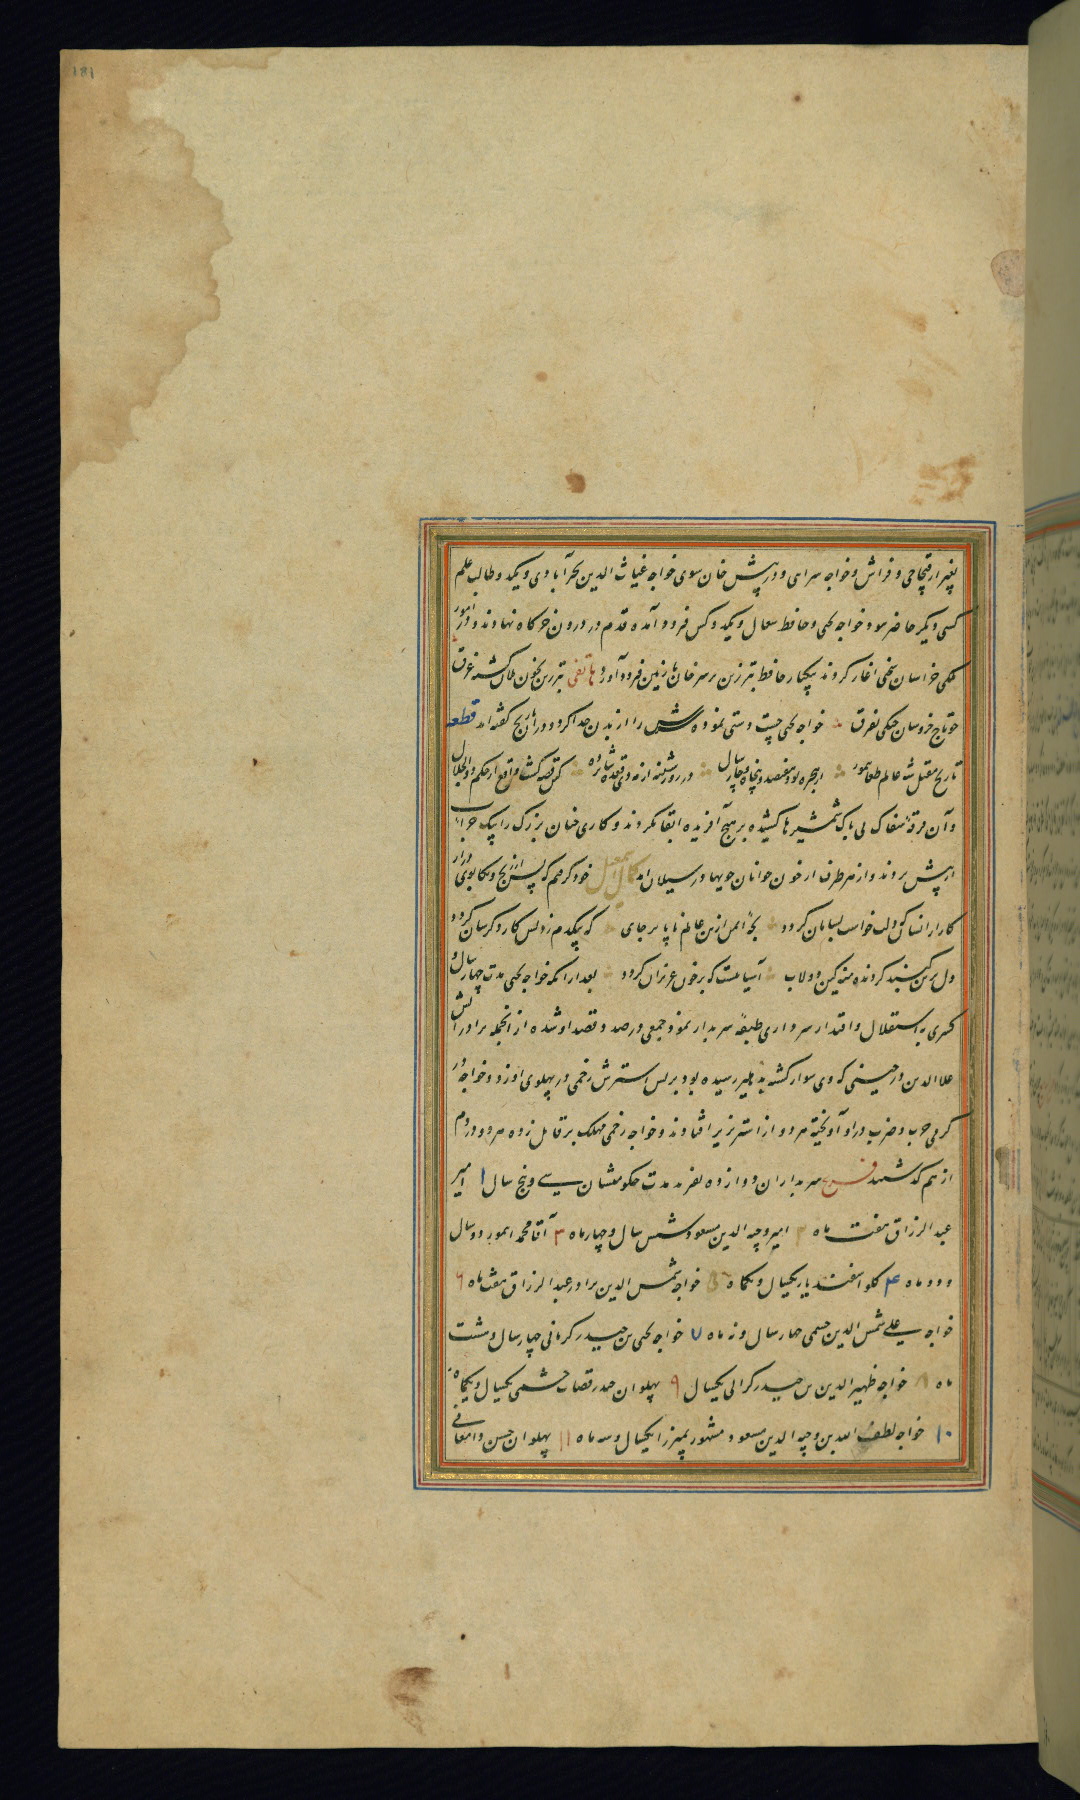 181
بغیر از قیجاجی و فراش و خواجه سرای و در پیش خان سوی خواجه غیاث الدین بحرآبادی و یکید و طالب علم
کسی دیگر حاضر نبود و خواجه یحیی و حافظ و کس فرود آمده قدم در درون خرکاه نهادند و در امور
ملکی خراسان سخن اغاز کردند بیکبار حافظ تبرزین بر سر خان نازنین فرود آورد هاتفی تبرزین بخون کشته غرق
چو تاج خروسان جنکی بفرق خواجه یحیی چست دستی نموده سرش را از بدن جدا کرد و در تاریخ کفته اند قطعه
تاریخ مقتل شه عالم طغاتیمور از هجره بود هفصد و پنجاه و چار سال در روز شنبه از مه ذی قعده شانزده کین قصه کشت واقع از حکم ذو الجلال
و آن فرقهٔ سفاک بی باک شمشیرها کشیده بر هیچ آفریده ابقا نکردند و کاری چنان بزرک را بیک
از پیش بردند و از هر طرف از خون جوانان جویها در سیلان آمد کمال اسمعیل خود کرفتم که پس از رنج و تکاپوی دراز
کار از انسان که دلت خواست بسامان کردد بجه ایمن ازین عالم ناپا بر جای که بیکدم زدنس کار دکرسان کردد
دل برین کنبد کردنده منه کین دولاب آسیائیست که بر خون عزیزان کردد بعد از انکه خواجه یحیی مدت چهار سال و
کسری باستقلال و اقتدار سرداری طبقهٔ سربدار نمود جمعی در صدد قصد او شده از انجمله برادر زنش
علاالدین در حینی که وی سوار کشته بدهلیز رسیده بود بر پس استرش زخمی در پهلوی او زد و خواجه در
کرمی حرب و ضرب در او آویخته هر دو از استر بزیر افتادند و خواجه زخمی مهلک بر قاتل زده هر دو در دم
از هم کذشتند سربداران دوازده نفرند مدت حکومتشان سی و پنج سال ۱ امیر
عبد الرزاق هفت ماه ۲ امیر وجیه الدین مسعود شش سال و چهار ماه ۳ آقا محمد ایمور دو سال
و دو ماه ۴ کلو اسفندیار یکسال و یکماه ۵ خواجه شمس الدین برادر عبد الرزاق هفت ماه ۶
خواجه علی شمس الدین چشمی چهار سال و نه ماه ۷ خواجه یحیی بن حیدر کرمانی چهار سال و هشت
ماه ۸ خواجه ظهیر الدین بن حیدر کرابی یکسال ۹ پهلوان حیدر قصاب چشمی یکسال و یکماه
۱۰ خواجه لطف الله بن وجیه الدین مسعود مشهور بمیرزا یکسال و سه ماه ۱۱ پهلوان حسن دامغانی